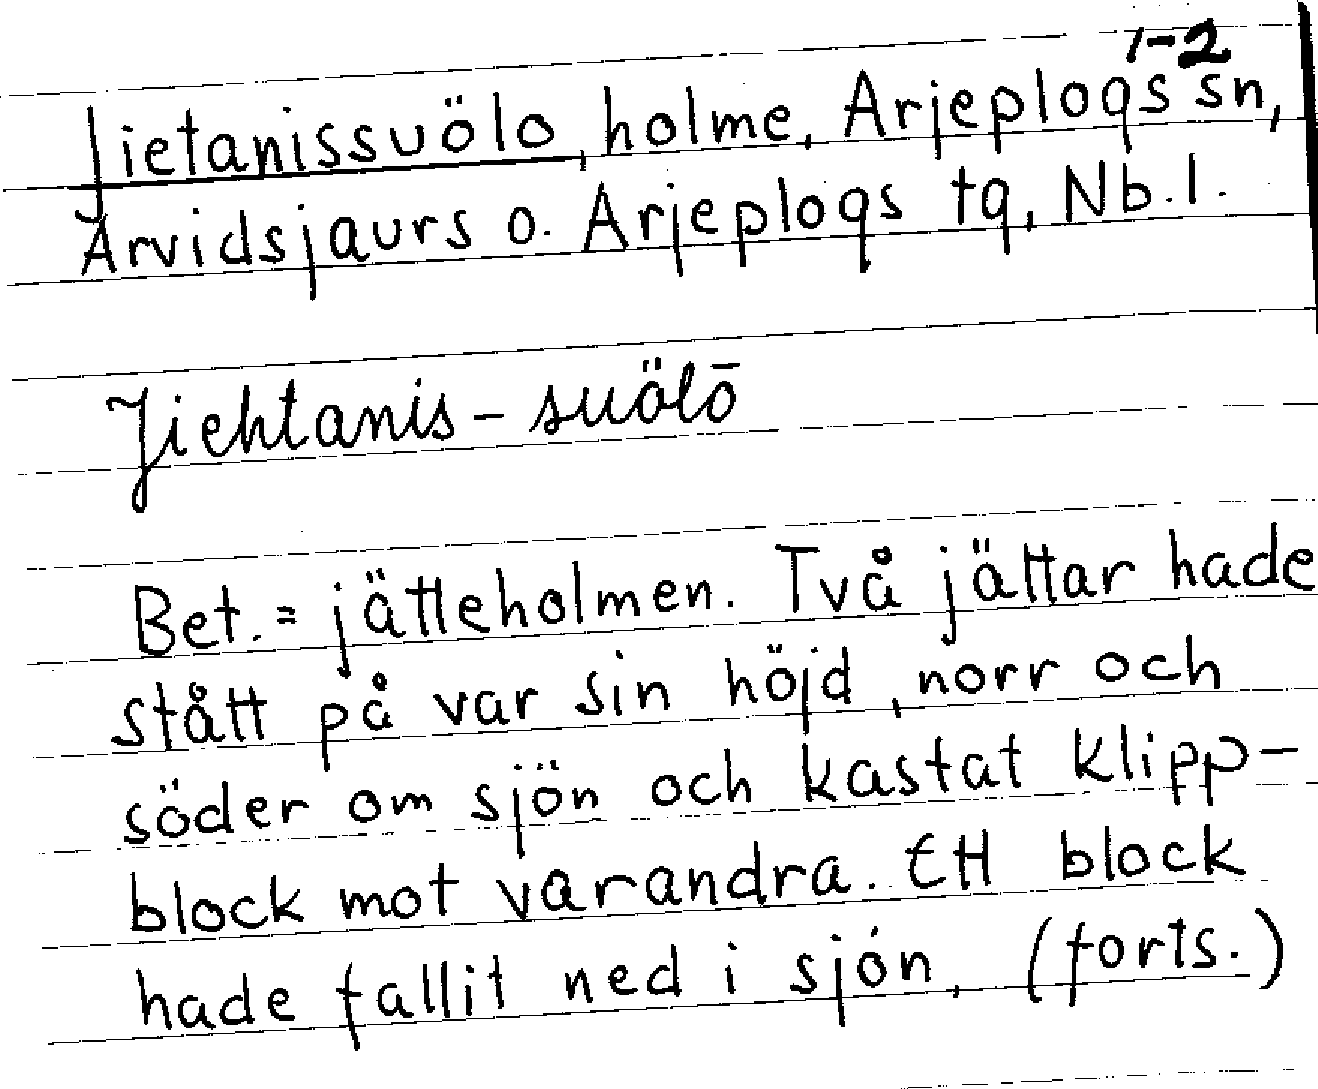 1-2
Jietanissuölo, holme, Arjeplogs sn,
Arvidsjaurs o. Arjeplogs tg, Nb.l.
Jiehtanis-suölō
Bet.= jätteholmen. Två jättar hade
stått på var sin höjd, norr och
söder om sjön och kastat klipp-
block mot varandra. Ett block
hade fallit ned i sjön, (forts.)